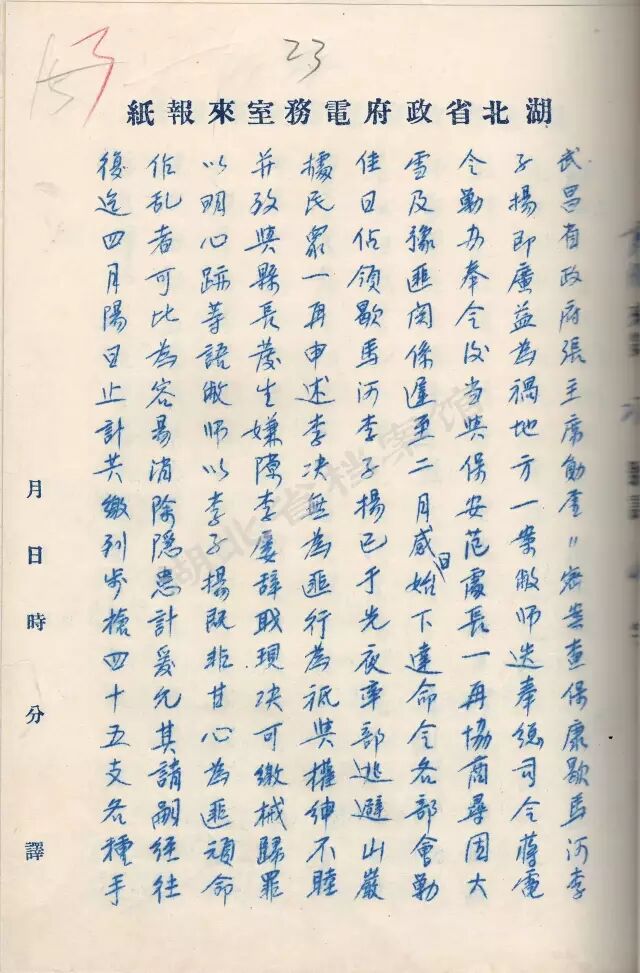 23
湖北省政府電務室來報紙
武昌省政府張主席勛鑒＝密案查保康歇馬河李
子揚即廉益為禍地方一案敝師迭奉總司令蔣電
令勦办奉令後当與保安范處長一再協商尋因大
雪及豫匪関係遲至二月感日始下達命令各部會勦
佳日佔領歇馬河李子揚已于先夜率部逃避山巖
據民衆一再申述李决無為匪行為祇與權紳不睦
并攷與縣長發生嫌隙李屡辞职現决可繳械歸罪
以明心跡等語敝師以李子揚既非甘心為匪頑命
作乱者可比為容易消除隱患計爰允其請嗣經往
復迄四月陽日止計共繳到步槍四十五支各種手
月日時分譯
湖北省档案馆